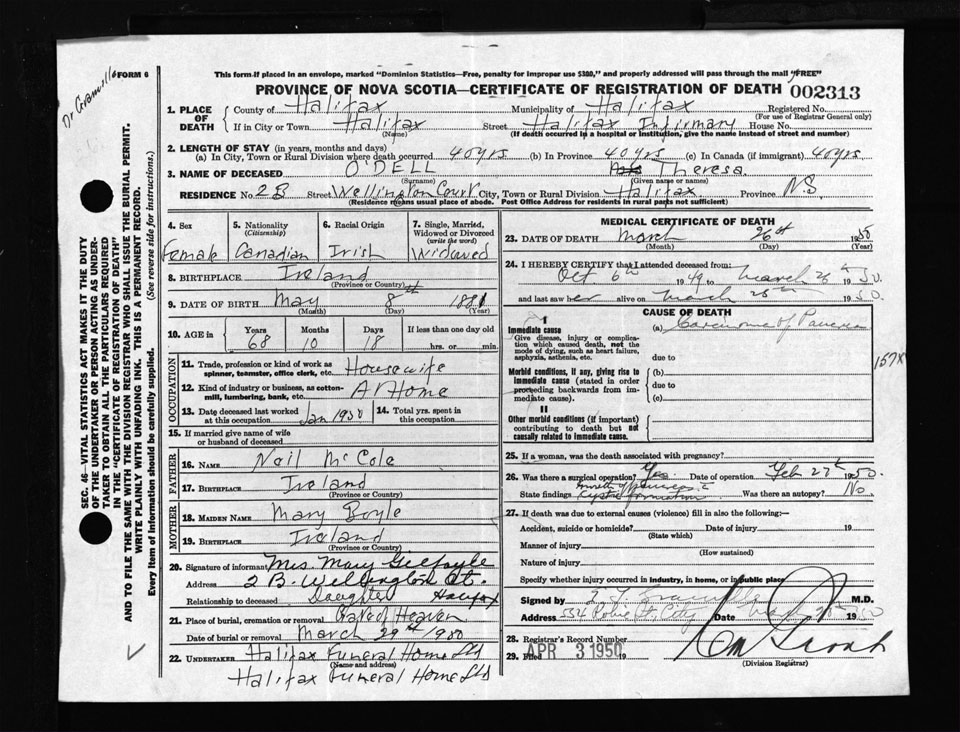 FORM 6
This form if placed in an envelope, marked "Dominion Statistics—Free, penalty for improper use $300," and properly addressed will pass through the mail "FREE"
PROVINCE OF NOVA SCOTIA—CERTIFICATE OF REGISTRATION OF DEATH 002313
1. PLACE OF DEATH { County of Halifax Municipality of Halifax Registered No.
(For use of Registrar General only)
If in City or Town Halifax Street Halifax Infirmary House No.
(Name) (If death occurred in a hospital or institution, give the name instead of street and number)
2. LENGTH OF STAY (in years, months and days)
(a) In City, Town or Rural Division where death occurred 40 yrs (b) In Province 40 yrs (c) In Canada (if immigrant) 40 yrs
3. NAME OF DECEASED O'DELL Theresa
(Surname) (Given name or names)
RESIDENCE No. 2B Street Wellington Court City, Town or Rural Division Halifax Province N.S
(Residence means usual place of abode. Post Office Address for residents in rural parts not sufficient)
4. Sex 5. Nationality (Citizenship) 6. Racial Origin 7. Single, Married, Widowed or Divorced (write the word)
Female Canadian Irish Widowed
8. BIRTHPLACE Ireland
(Province or Country)
9. DATE OF BIRTH May 8th 1881
(Month) (Day) (Year)
10. AGE in { Years Months Days If less than one day old
68 10 18 hrs. or min.
OCCUPATION
11. Trade, profession or kind of work as spinner, teamster, office clerk, etc. Housewife
12. Kind of industry or business, as cotton-mill, lumbering, bank, etc. At Home
13. Date deceased last worked at this occupation Jan 1950 14. Total yrs. spent in this occupation
15. If married give name of wife or husband of deceased
FATHER
16. NAME Neil McCole
17. BIRTHPLACE Ireland
(Province or Country)
MOTHER
18. MAIDEN NAME Mary Boyle
19. BIRTHPLACE Ireland
(Province or Country)
20. Signature of informant Mrs. Mary Gilfoyle
Address 2 B. Wellington Ct.
Relationship to deceased Daughter Halifax
21. Place of burial, cremation or removal Gate of Heaven
Date of burial or removal March 29th 1950
22. UNDERTAKER Halifax Funeral Home Ltd
(Name and address)
Halifax Funeral Home Ltd
MEDICAL CERTIFICATE OF DEATH
23. DATE OF DEATH March 26th 1950
(Month) (Day) (Year)
24. I HEREBY CERTIFY that I attended deceased from:
Oct 6th 1949 to March 26th 1950
and last saw her alive on March 25th 1950
CAUSE OF DEATH
I
Immediate cause (a) Carcinoma of Pancreas
Give disease, injury or complication which caused death, not the mode of dying, such as heart failure, asphyxia, asthenia, etc.
due to
157X
Morbid conditions, if any, giving rise to immediate cause (stated in order proceeding backwards from immediate cause).
(b)
due to
(c)
II
Other morbid conditions (if important) contributing to death but not causally related to immediate cause.
25. If a woman, was the death associated with pregnancy?
26. Was there a surgical operation? Yes Date of operation Feb 27th 1950
State findings Cystic formation Was there an autopsy? No
27. If death was due to external causes (violence) fill in also the following:—
Accident, suicide or homicide? Date of injury 19
(State which)
Manner of injury
(How sustained)
Nature of injury
Specify whether injury occurred in industry, in home, or in public place
Signed by M.D.
Address 554 Robie St. City Date 1950
28. Registrar's Record Number
29. Filed APR 3 1950 19
(Division Registrar)
SEC. 46—VITAL STATISTICS ACT MAKES IT THE DUTY
OF THE UNDERTAKER OR PERSON ACTING AS UNDER-
TAKER TO OBTAIN ALL THE PARTICULARS REQUIRED
IN THE "CERTIFICATE OF REGISTRATION OF DEATH"
AND TO FILE THE SAME WITH THE DIVISION REGISTRAR WHO SHALL ISSUE THE BURIAL PERMIT.
WRITE PLAINLY WITH UNFADING INK. THIS IS A PERMANENT RECORD.
Every item of Information should be carefully supplied. (See reverse side for instructions.)